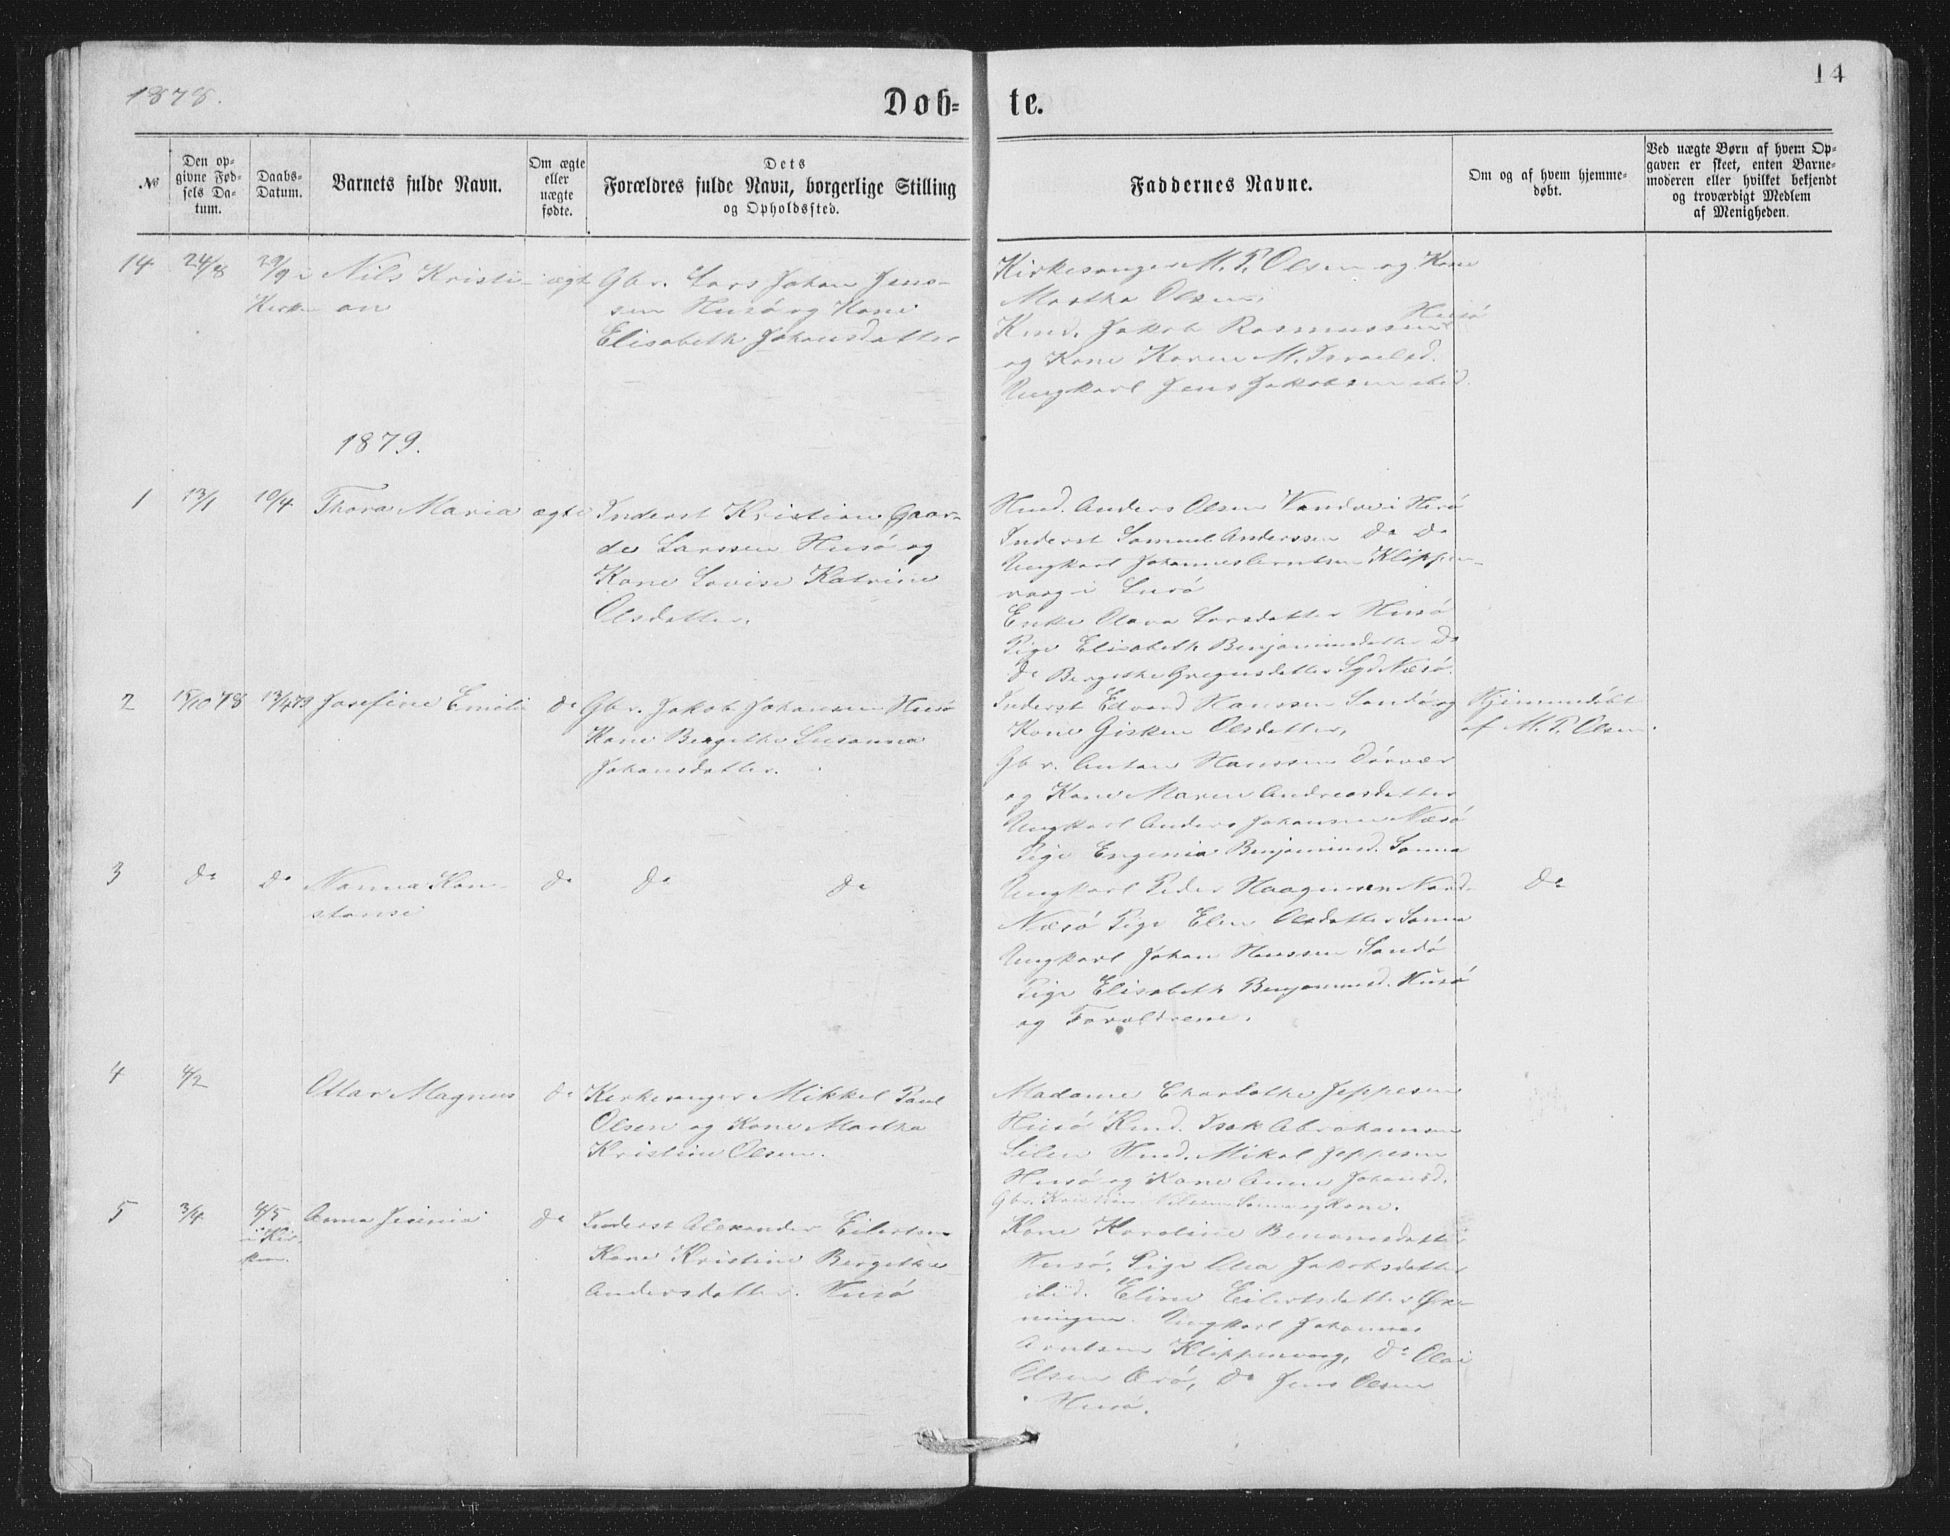 1878.
Døb-te.
14
№
Den opgivne Fødsels Datum.
Daabs-Datum.
Barnets fulde Navn.
Om ægte eller uægte fødte.
Dets
Forældres fulde Navn, borgerlige Stilling
og Opholdssted.
Faddernes Navne.
Om og af hvem hjemme-
døbt.
Ved uægte Børn af hvem Op-
gaven er skeet, enten Barne-
moderen eller hvilket bekjendt
og troværdigt Medlem
af Menigheden.
14 24/8 29/9 i Nils Kristi- ægte Gbr. Lars Johan Jens-
Kirken an sen Husø og Kone
Elisabeth Johansdatter
Kirkesanger M. P. Olsen og Kone
Martha Olsen, Husø
Kmd. Jakob Rasmussen
og Kone Karen M. Israelsd.
Ungkarl Jens Jakobsen ibid.
1879.
1 13/1 10/4 Thora Maria ægte Inderst Kristian Gaar-
der Larssen Husø og
Kone Lovise Katrine
Olsdatter.
Hmd. Anders Olsen Vandve i Herø
Inderst Samuel Anderssen do do
Ungkarl Johannes Arntsen Klippen-
vaag i Lurø
Enke Olava Larsdatter Husø
Pige Elisabeth Benjaminsdatter do
do Bergethe Gregusdatter Syd Næsø.
2 15/10 78 13/4 79 Josefine Emilie do Gbr. Jakob Johansen Husø
Kone Bergithe Susanna
Johansdatter.
Inderst Edvard Hanssen Sandø og
Kone Gisken Olsdatter,
Gbr. Anton Hanssen Dørvær
og Kone Maren Andreasdatter
Ungkarl Anders Johansen Næsø
Pige Engenia Benjaminsd. Sanna
Hjemmedøbt
af M. P. Olsen.
3 do do Nanna Kon- do do do
stanse
Ungkarl Peder Haagensen Nord-
Næsø Pige Elen Olsdatter Sanna
Ungkarl Johan Hanssen Sandø
Pige Elisabeth Benjaminsd. Husø
og Forældrene.
do
4 4/2 Ottar Magnus do Kirkesanger Mikkel Paul
Olsen og Kone Martha
Kristine Olsen.
Madame Charlothe Jeppesen
Husø Kmd. Isak Abrahamsen
Silen Hmd. Mikal Jeppesen
Husø og Kone Anne Johansd.
Gbr. Kristian Nilsen Sanna og Kone.
5 3/4 4/5 i Kir-
ken.
Anna Jesenia do Inderst Alexander Eilertsen
Kone Kristine Bergithe
Andersdatter. Husø
Kone Karoline Benonisdatter
Husø, Pige Olea Jakobsdatter
ibid. Eline Eilertsdatter Øre-
ningen. Ungkarl Johannes
Arntsen Klippenvaag, do Olai
Olsen Ørø, do Jens Olsen
Husø.